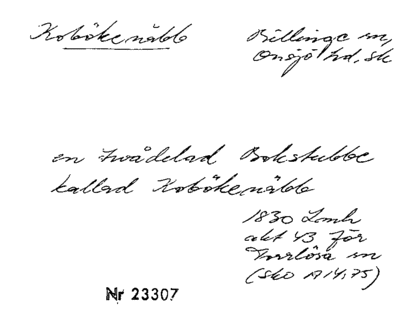 Koböke näbb
Billinge sn,
Onsjö hd, sk
en tvådelad Bokstubbe
kallad Koböke näbb
1830 Lmh
akt 43 för
sn
(sko A14:75)
Nr 23307